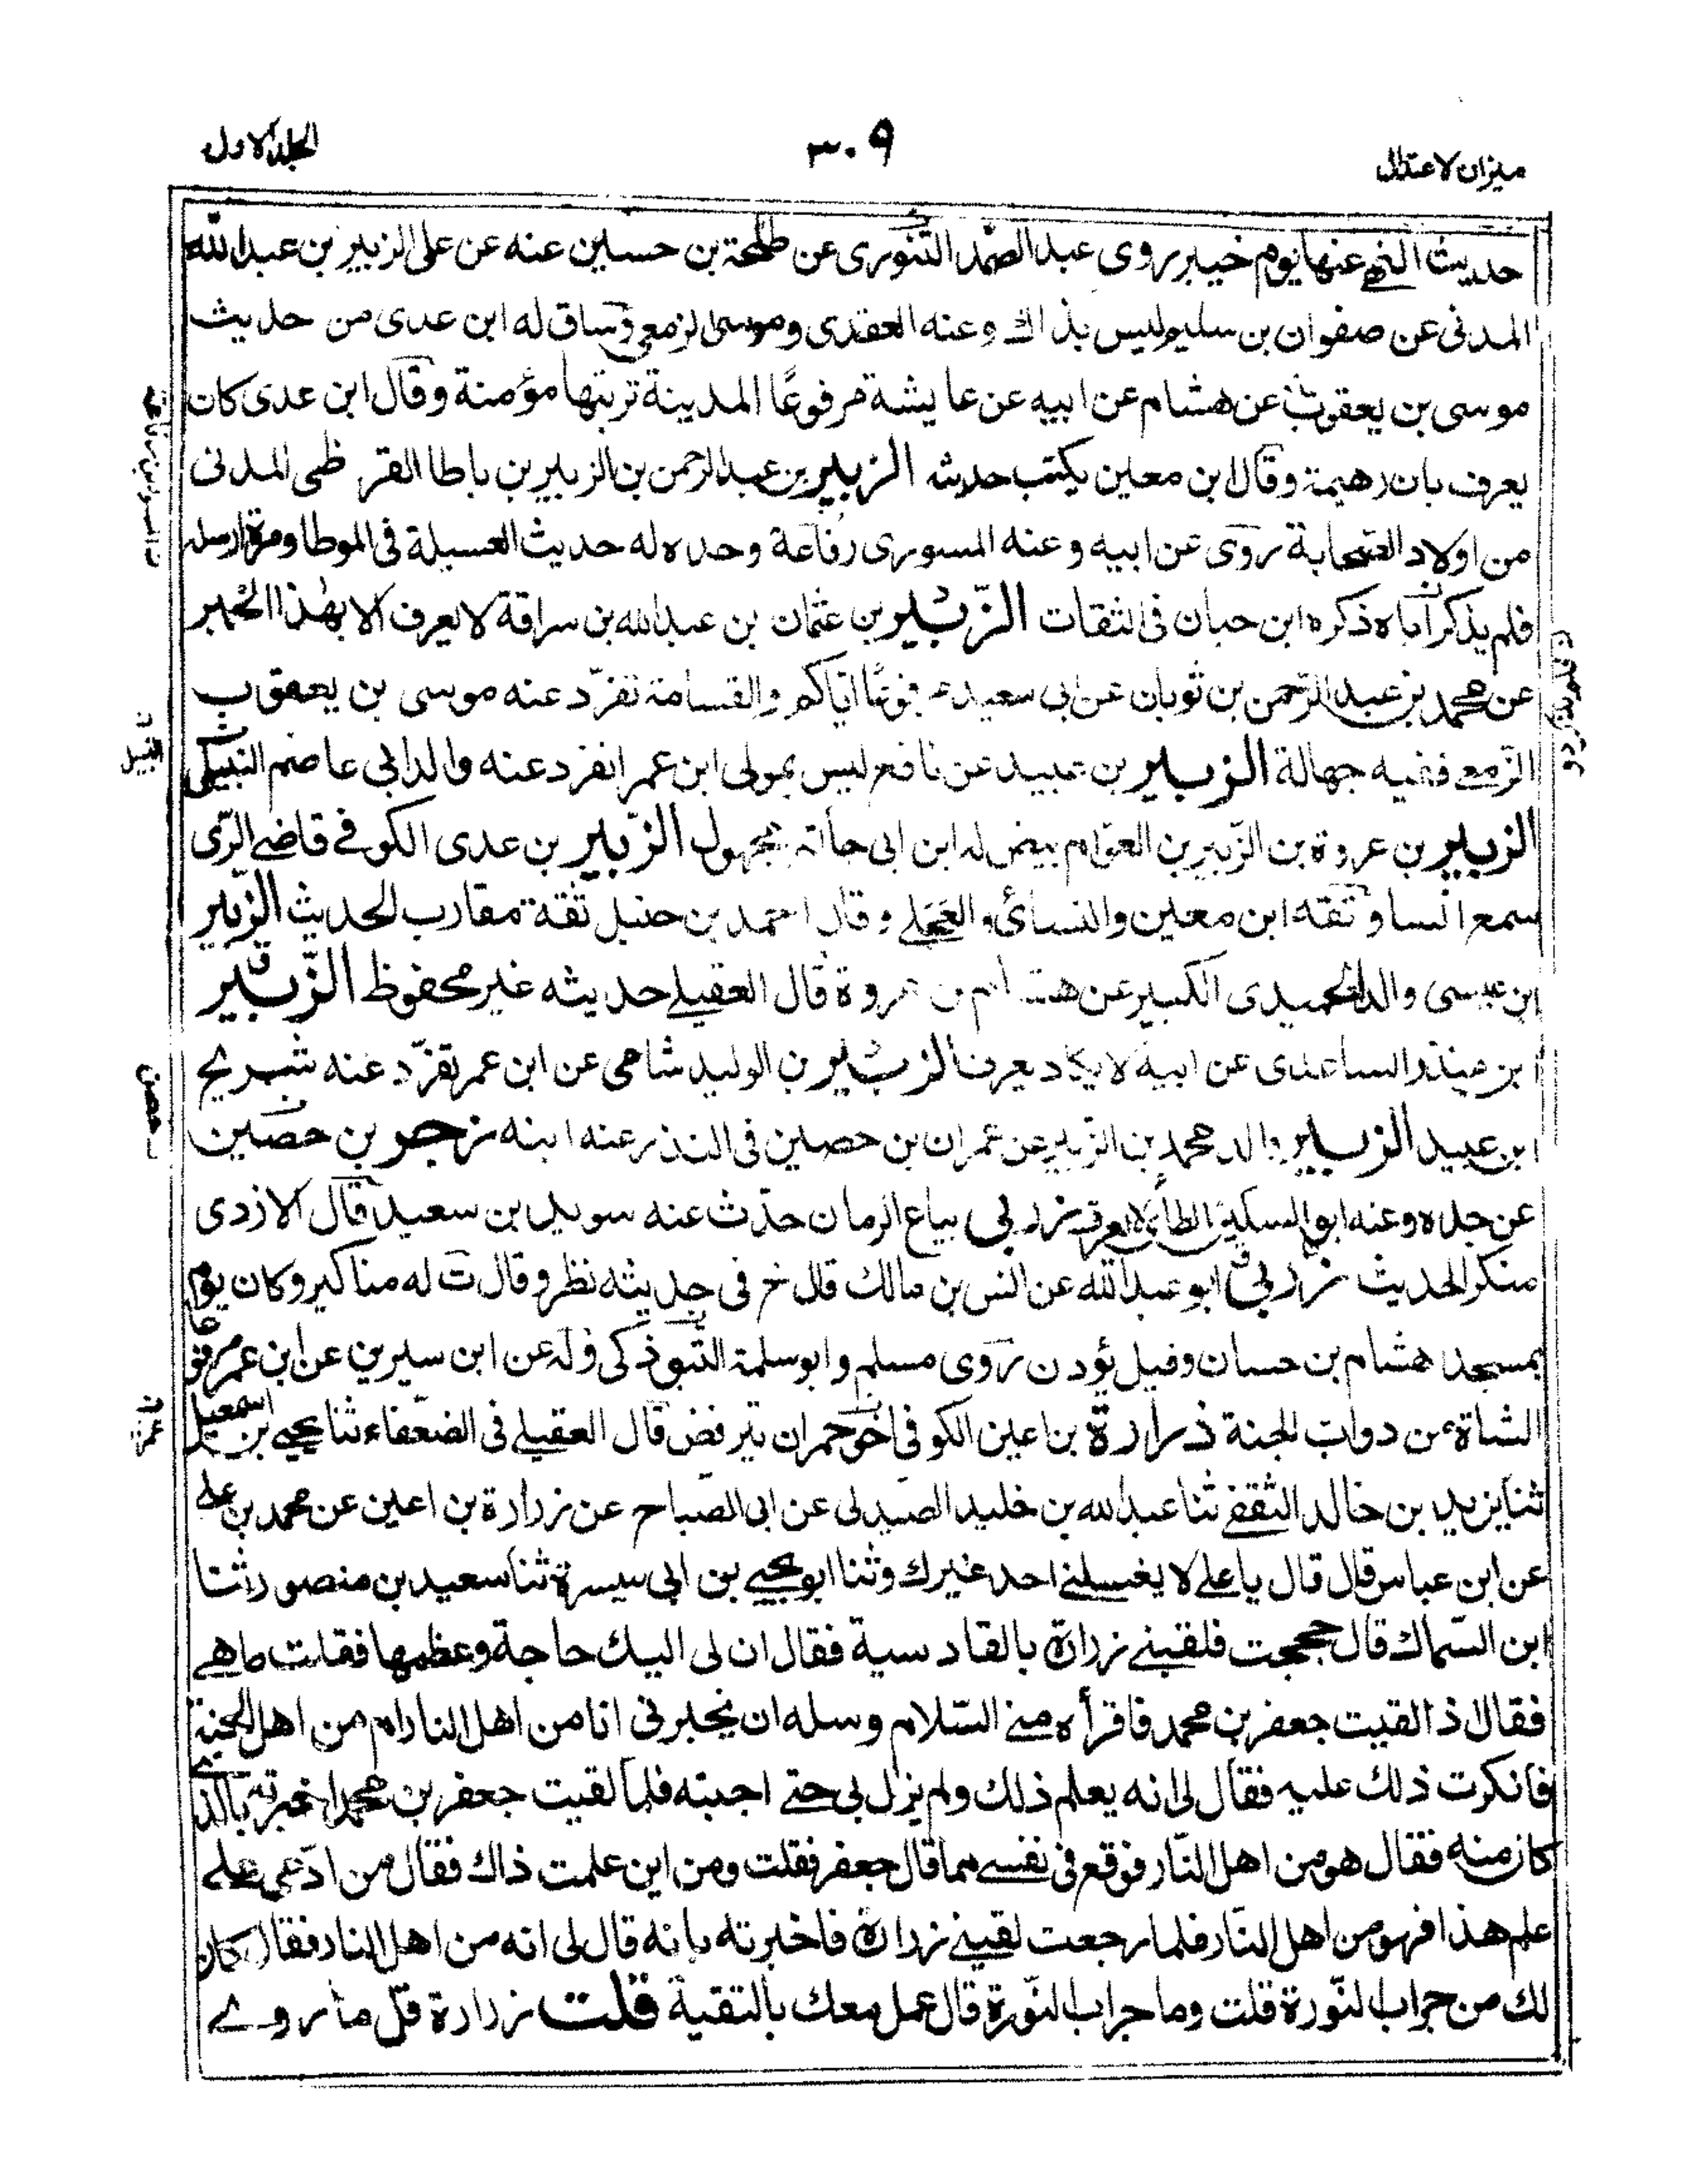 ميزان الاعتدال
٣٠٩
الجلد الاول
حديث النهى عنها يوم خيبر روى عبد الصمد التنورى عن طلحة بن حسين عنه عن على الزبير بن عبد الله
المدنى عن صفوان بن سليم ليس بذاك وعنه العقدى وموسى الزمعى وساق له ابن عدى من حديث
موسى بن يعقوب عن هشام عن ابيه عن عايشة مرفوعًا المدينة تربتها مؤمنة وقال ابن عدى كان
يعرف بابن رهيمة وقال ابن معين يكتب حديثه الزبير بن عبد الرحمن بن الزبير بن باطا القرظى المدنى
من اولاد الصحابة روى عن ابيه وعنه المسورى رفاعة وحده له حديث العسيلة فى الموطا ومرة ارسله
فلم يذكر اباه ذكره ابن حبان فى الثقات الزّبير بن عثمان بن عبد الله بن سراقة لا يعرف الا بهذا الخبر
عن محمد بن عبد الرّحمن بن ثوبان عن ابى سعيد مرفوعًا اياكم والقسامة تفرّد عنه موسى بن يعقوب
الزّمعے ففيه جهالة الزبير بن عبيد عن نافع ليس بمولى ابن عمر انفرد عنه والد ابى عاصم النبيل
الزبير بن عروة بن الزّبير بن العوّام بيض له ابن ابى حاتم مجهول الزّبير بن عدى الكوفے قاضے الرّى
سمع انسا وثقه ابن معين والنسائى والعجلے وقال احمد بن حنبل ثقة مقارب الحديث الزبير
ابن عيسى والد الحميدى الكبير عن هشام بن عروة قال العقيلے حديثه غير محفوظ الزّبير
بن منذر الساعدى عن ابيه لا يكاد يعرف الزبير بن الوليد شامى عن ابن عمر تفرّد عنه شريح
ابن عبيد الزبير والد محمد بن الزبير عن عمران بن حصين فى النذر عنه ابنه زحر بن حصين
عن جده وعنه ابو السكين الطائى لا يعرف زربى بياع الرمان حدّث عنه سويد بن سعيد قال الازدى
منكر الحديث زربى ابو عبد الله عن انس بن مالك قال خ فى حديثه نظر وقال ت له مناكير وكان يؤم
بمسجد هشام بن حسان وقيل يؤذن روى مسلم وابو سلمة التبوذكى وله عن ابن سيرين عن ابن عمر مرفوعا
الشاة من دواب الجنة زرارة بن اعين الكوفى اخو حمران يترفض قال العقيلے فى الضعفاء ثنا يحيے بن اسمعيل
ثنا يزيد بن خالد الثقفے ثنا عبد الله بن خليد الصيدلى عن ابى الصباح عن زرارة بن اعين عن محمد بن علے
عن ابن عباس قال قال يا علے لا يغسلنے احد غيرك وثنا ابو يحيے بن ابى ميسرة ثنا سعيد بن منصور ثنا
ابن السّماك قال حججت فلقينے زرارة بالقادسية فقال ان لى اليك حاجة وعظمها فقلت ما هے
فقال اذا لقيت جعفر بن محمد فاقرأه منے السّلام وسله ان يخبرنى انا من اهل النار ام من اهل الجنة
فانكرت ذلك عليه فقال لى انه يعلم ذلك ولم يزل بى حتے اجبته فلما لقيت جعفر بن محمد اخبرته بالذے
كان منه فقال هو من اهل النّار فوقع فى نفسے مما قال جعفر فقلت ومن اين علمت ذاك فقال من ادّعى علے
علم هذا فهو من اهل النّار فلما رجعت لقينے زرارة فاخبرته بانه قال لى انه من اهل النار فقال كان
لك من جراب النّورة قلت وما جراب النّورة قال عمل معك بالتقية قلت زرارة قلّ ما روے